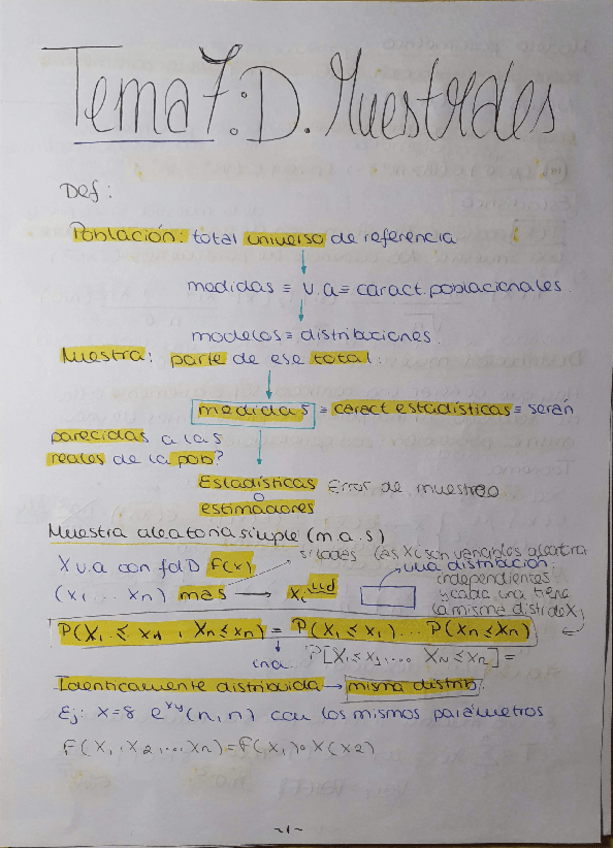 Tema 7: D. Muestrales
Def:
Población: total universo de referencia
medidas ≡ v.a ≡ caract. poblacionales.
modelos ≡ distribuciones.
Muestra: parte de ese total:
medidas ≡ caract estadísticas ≡ serán
parecidas a las
reales de la pob?
Estadísticas Error de muestreo
o
estimadores
Muestra aleatoria simple (m a.s)
las Xi son variables aleatoria
X v.a con fdD F(x) una distribución:
independientes
(x1 ... xn) mas → Xi iid y cada una tiene
la misma distr de X,
P(X1 ≤ x1, Xn ≤ xn) = P(X1 ≤ x1)... P(Xn ≤ xn)
P[X1 ≤ x1, ... Xn ≤ xn] =
Identicamente distribuida → misma distrib.
Ej: X=8 e^xy (n, n) con los mismos parámetros
F(X1, X2, ... Xn) = f(x1) o X(x2)
-1-